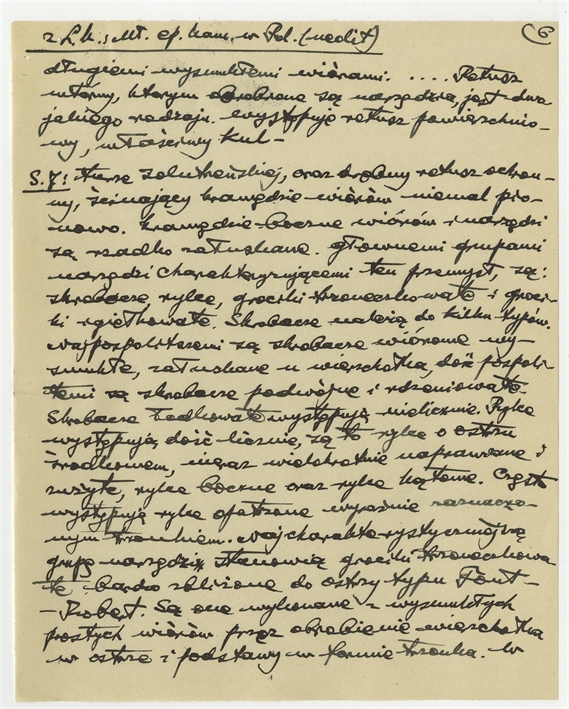 z L.k.: Mł. ep. kam. w Pol. (nedit) 6
długiemi wysmukłemi wiórami. .... Retusz
wtórny, którym obrabiane są narzędzia, jest dwo-
jakiego rodzaju. Występuje retusz powierzchnio-
wy, właściwy kul-
S.7: turze solutreńskiej, oraz drobny retusz ochron-
ny, ścinający krawędzie wiórów niemal pio-
nowo. Krawędzie boczne wiórów i narzędzi
są rzadko załuskane. Głównemi grupami
narzędzi charakteryzującemi ten przemysł, są:
skrobacze, rylce, grociki trzoneczkowate i groci-
ki igiełkowate. Skrobacze należą do kilku typów.
Najpospolitszemi są skrobacze wiórowe wy-
smukłe, załuskane u wierzchołka, dość pospoli-
temi są skrobacze podwójne i rdzeniowate.
Skrobacze łódkowate występują nielicznie. Rylce
występują dość licznie, są to rylce o ostrzu
środkowem, nieraz wielokrotnie naprawiane i
zużyte, rylce boczne oraz rylce kątowe. Często
występują rylce opatrzone wyraźnie zaznaczo-
nym trzonkiem. Najcharakterystyczniejszą
grupę narzędzi stanowią grociki trzoneczkowa-
te bardzo zbliżone do ostrzy typu Font-
-Robert. Są one wykonane z wysmukłych
prostych wiórów przez obrobienie wierzchołka
w ostrze i podstawy w formie trzonka. W